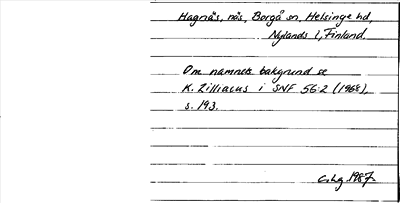 Hagnäs, näs, Borgå sn, Helsinge hd,
Nylands l, Finland.
Om namnets bakgrund se
K. Zilliacus i SNF 56:2 (1968),
s. 193.
C.Lg 1987